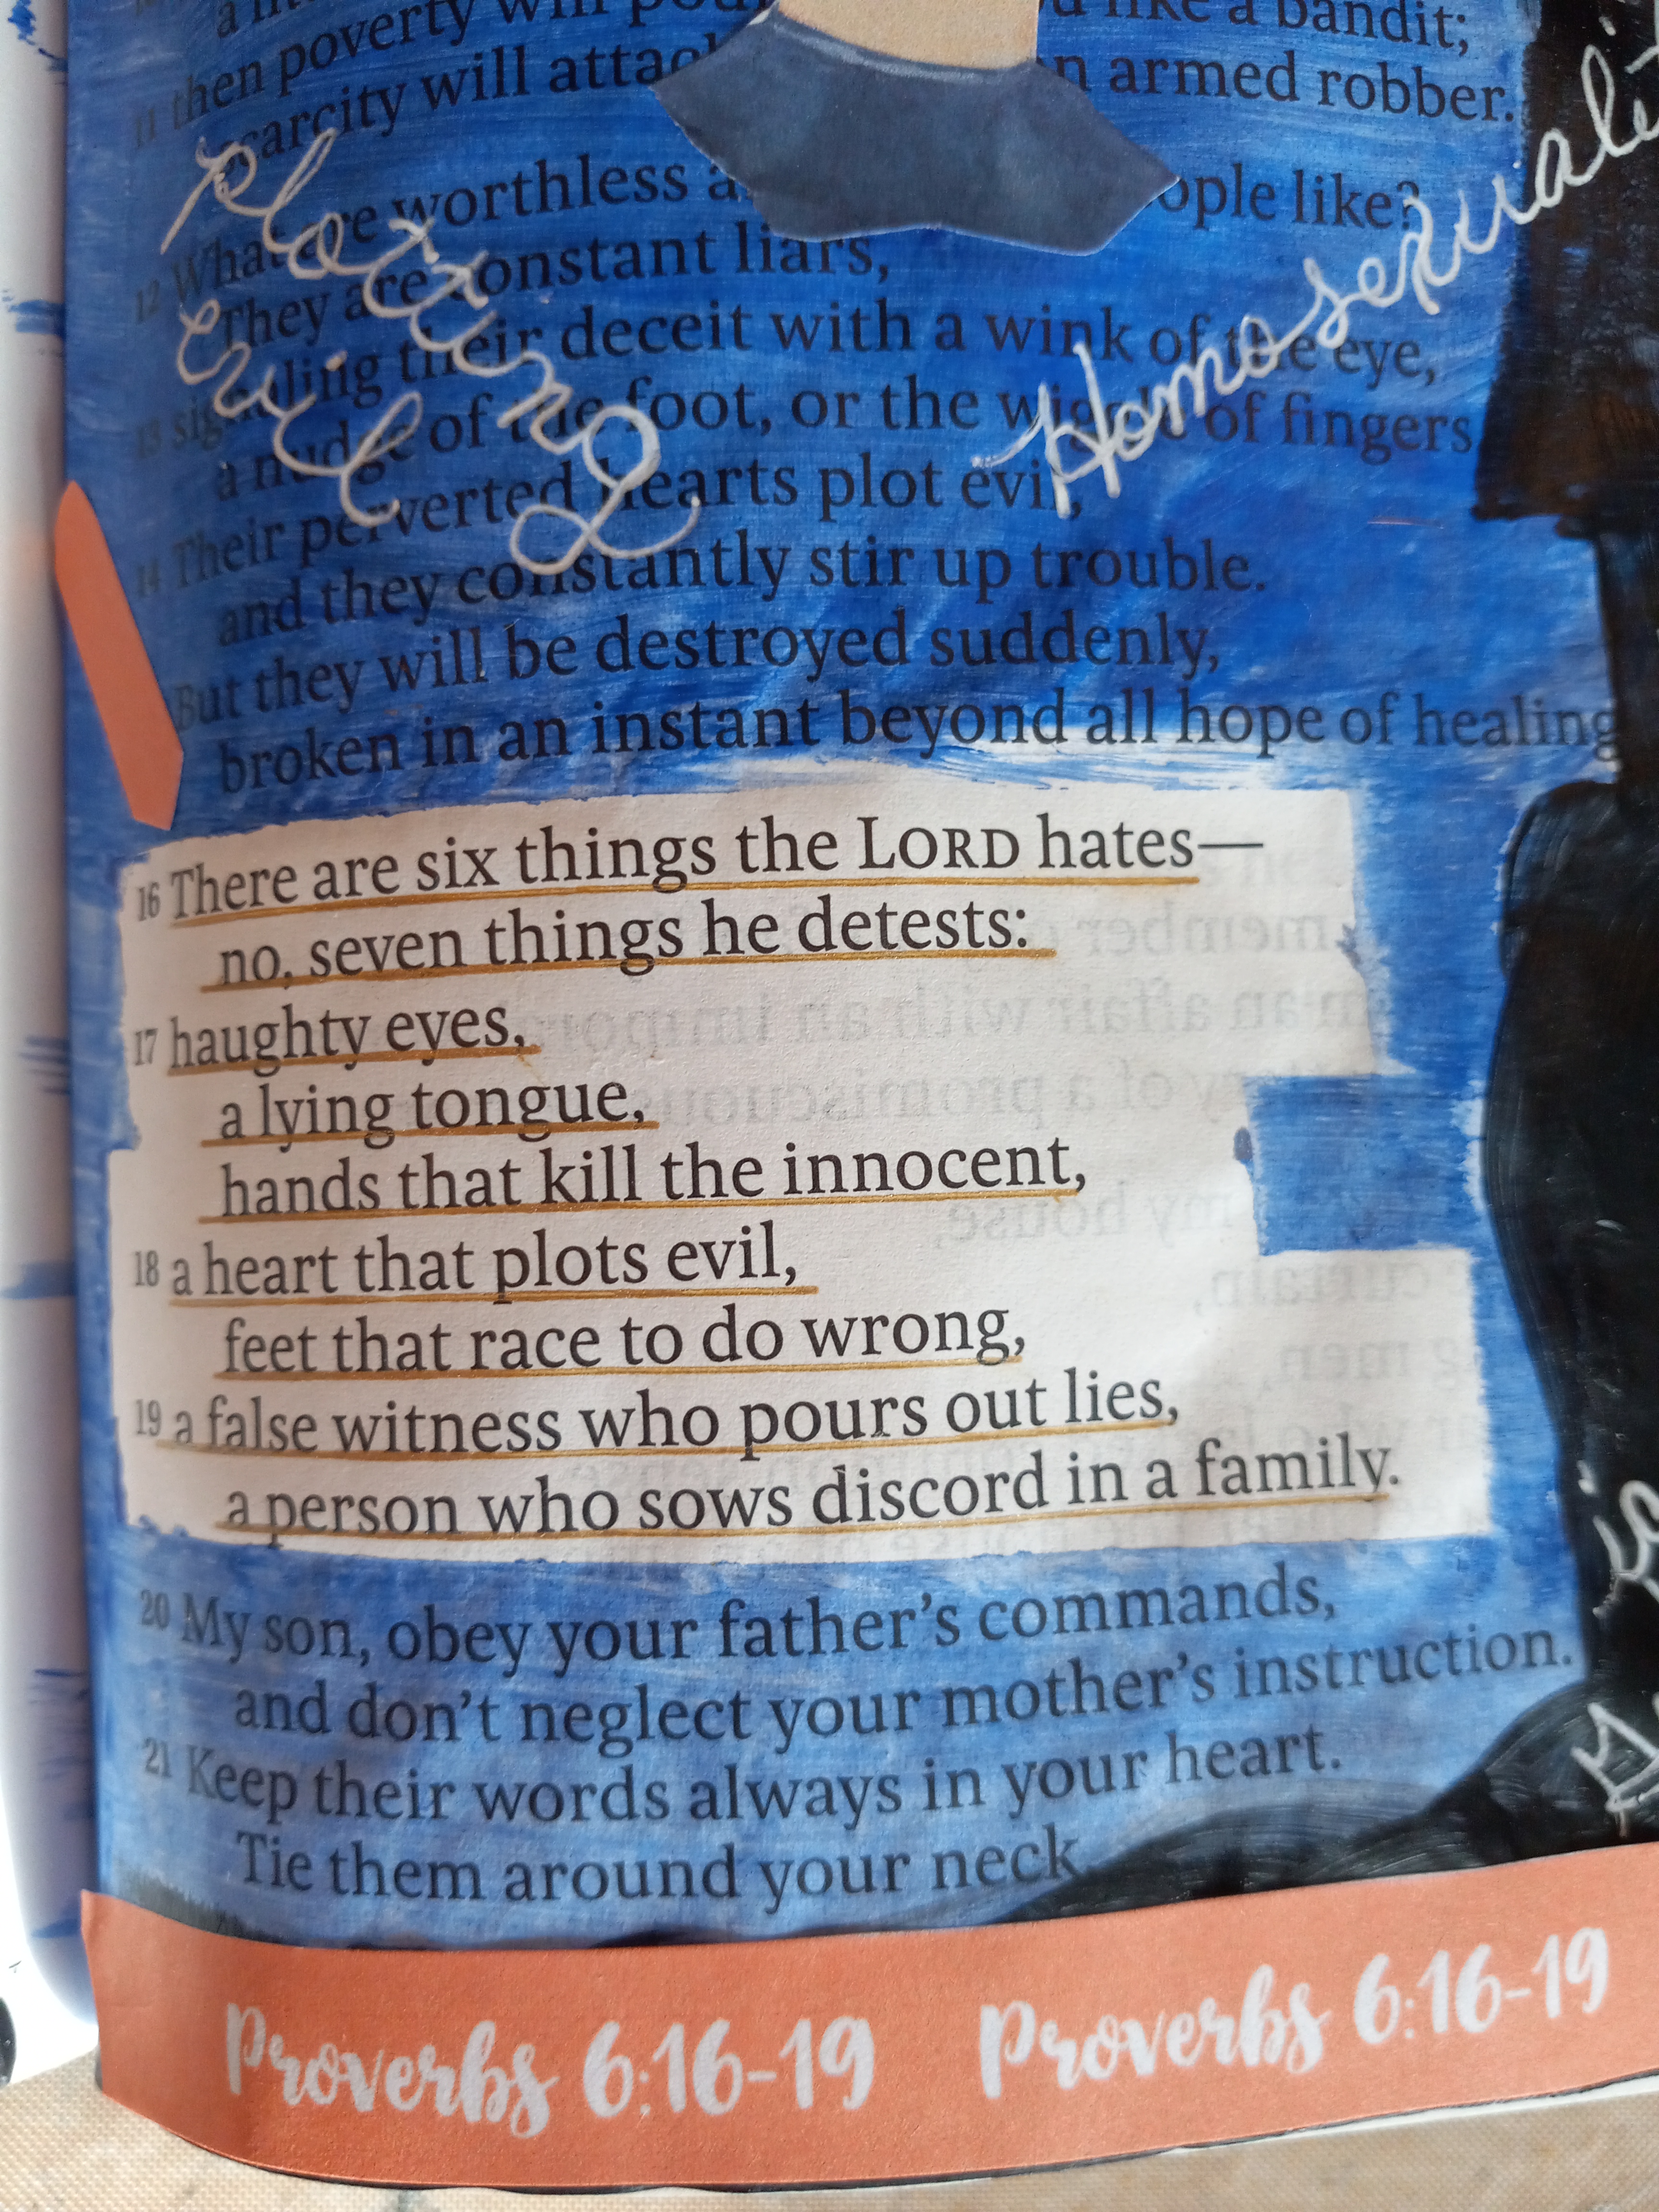 then poverty will like a bandit;
11 scarcity will armed robber.
Plotting
evil
Homosexuali
12 What are worthless like?
They are constant liars,
13 signaling their deceit with a wink of the eye,
a nudge of the foot, or the wiggle of fingers
14 Their perverted hearts plot evil,
and they constantly stir up trouble.
But they will be destroyed suddenly,
broken in an instant beyond all hope of healing
16 There are six things the LORD hates—
no, seven things he detests:
17 haughty eyes,
a lying tongue,
hands that kill the innocent,
18 a heart that plots evil,
feet that race to do wrong,
19 a false witness who pours out lies,
a person who sows discord in a family.
20 My son, obey your father's commands,
and don't neglect your mother's instruction.
21 Keep their words always in your heart.
Tie them around your neck
Proverbs 6:16-19 Proverbs 6:16-19